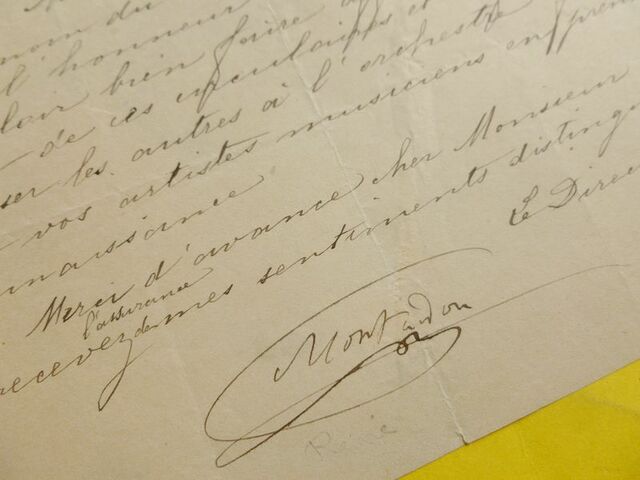 nom du
l'honneur
loir bien faire
de ces circulaires et
ser les autres à l'orchestre
vos artistes musiciens en pren
naissance
Merci d'avance cher Monsieur
l'assurance
recevez de mes sentiments disting
Le Direc
Montandon
René